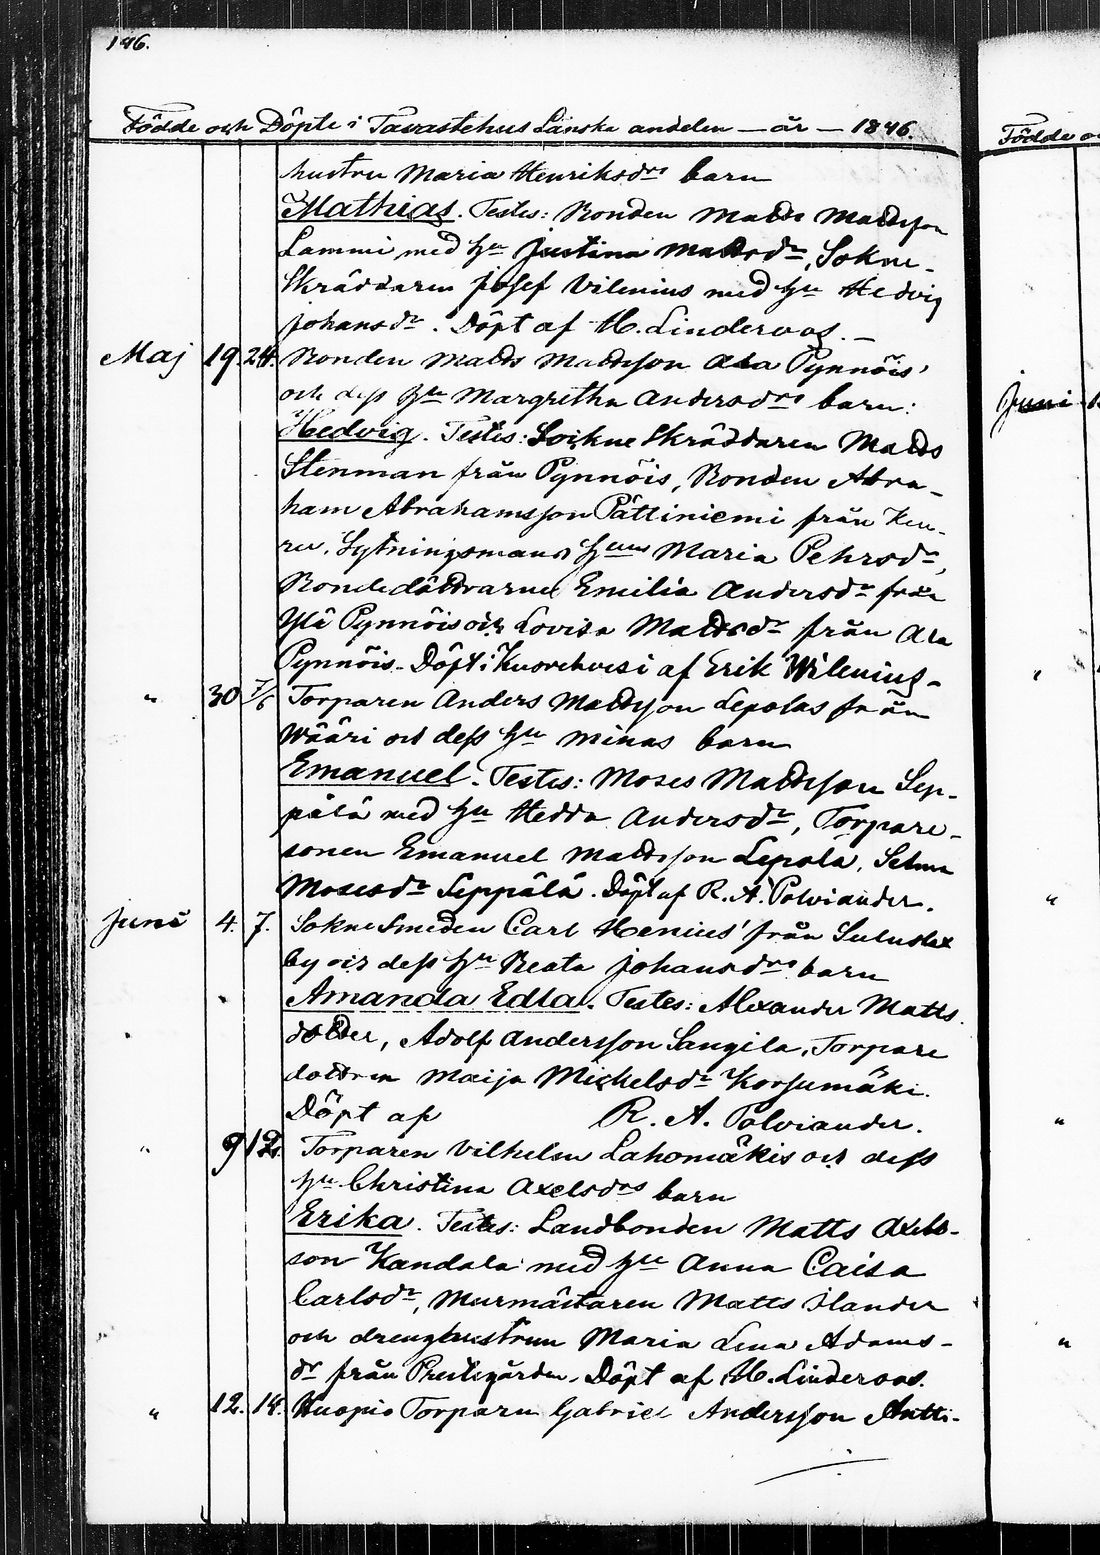 146.
Födde och Döpte i Tavastehus Länska andelen — år — 1846.
Födde
hustru Maria Henriksdrs barn
Mathias. Testes: Bonden Matts Mattsson
Lammi med hu Justina Mattsdr, Sokne-
Skräddaren Josef Vilenius med hu Hedvig
Johansdr. Döpt af H. Linderoos. —
Maj 19. 24. Bonden Matts Mattsson Ala Pynnöis'
och dess hu Margretha Andersdrs barn:
Hedvig. Testes: Sockne Skräddaren Matts
Stenman från Pynnöis, Bonden Abra-
ham Abrahamsson Pättiniemi från Keu-
ru, Sytningsmans hus Maria Pehrsdr,
Bondedöttrarne Emilia Andersdr från
Ylä Pynnöis och Lovisa Mattsdr från Ala
Pynnöis. Döpt i Kuorehvesi af Erik Wilenius -
" 30 7/6 Torparen Anders Mattsson Lepolas från
Wääri och dess hu Minas barn
Emanuel. Testes: Moses Mattsson Sep-
pälä med hu Hedda Andersdr, Torpare-
sonen Emanuel Mattsson Lepola, Selma
Mosesdr Seppälä. Döpt af R. A. Polviander.
Juni 4. 7. Sokne Smeden Carl Henius' från
by och dess hu Beata Johansdrs barn
Amanda Edla. Testes: Alexander Matts
dotter, Adolf Andersson Sangila, Torpare
dottren Maija Michelsdr Korsumäki.
Döpt af R. A. Polviander.
" 9 12. Torparen Vilhelm Lahomäkis och dess
hu Christina Axelsdrs barn
Erika. Testes: Landbonden Matts Axels-
son Kandala med hu Anna Caisa
Carlsdr, Murmästaren Matts Ilander
och drenghustrun Maria Lena Adams-
dr från Prestgården. Döpt af H. Linderoos.
" 12. 14. Kuopio Torparn Gabriel Andersson Antti-
Juni